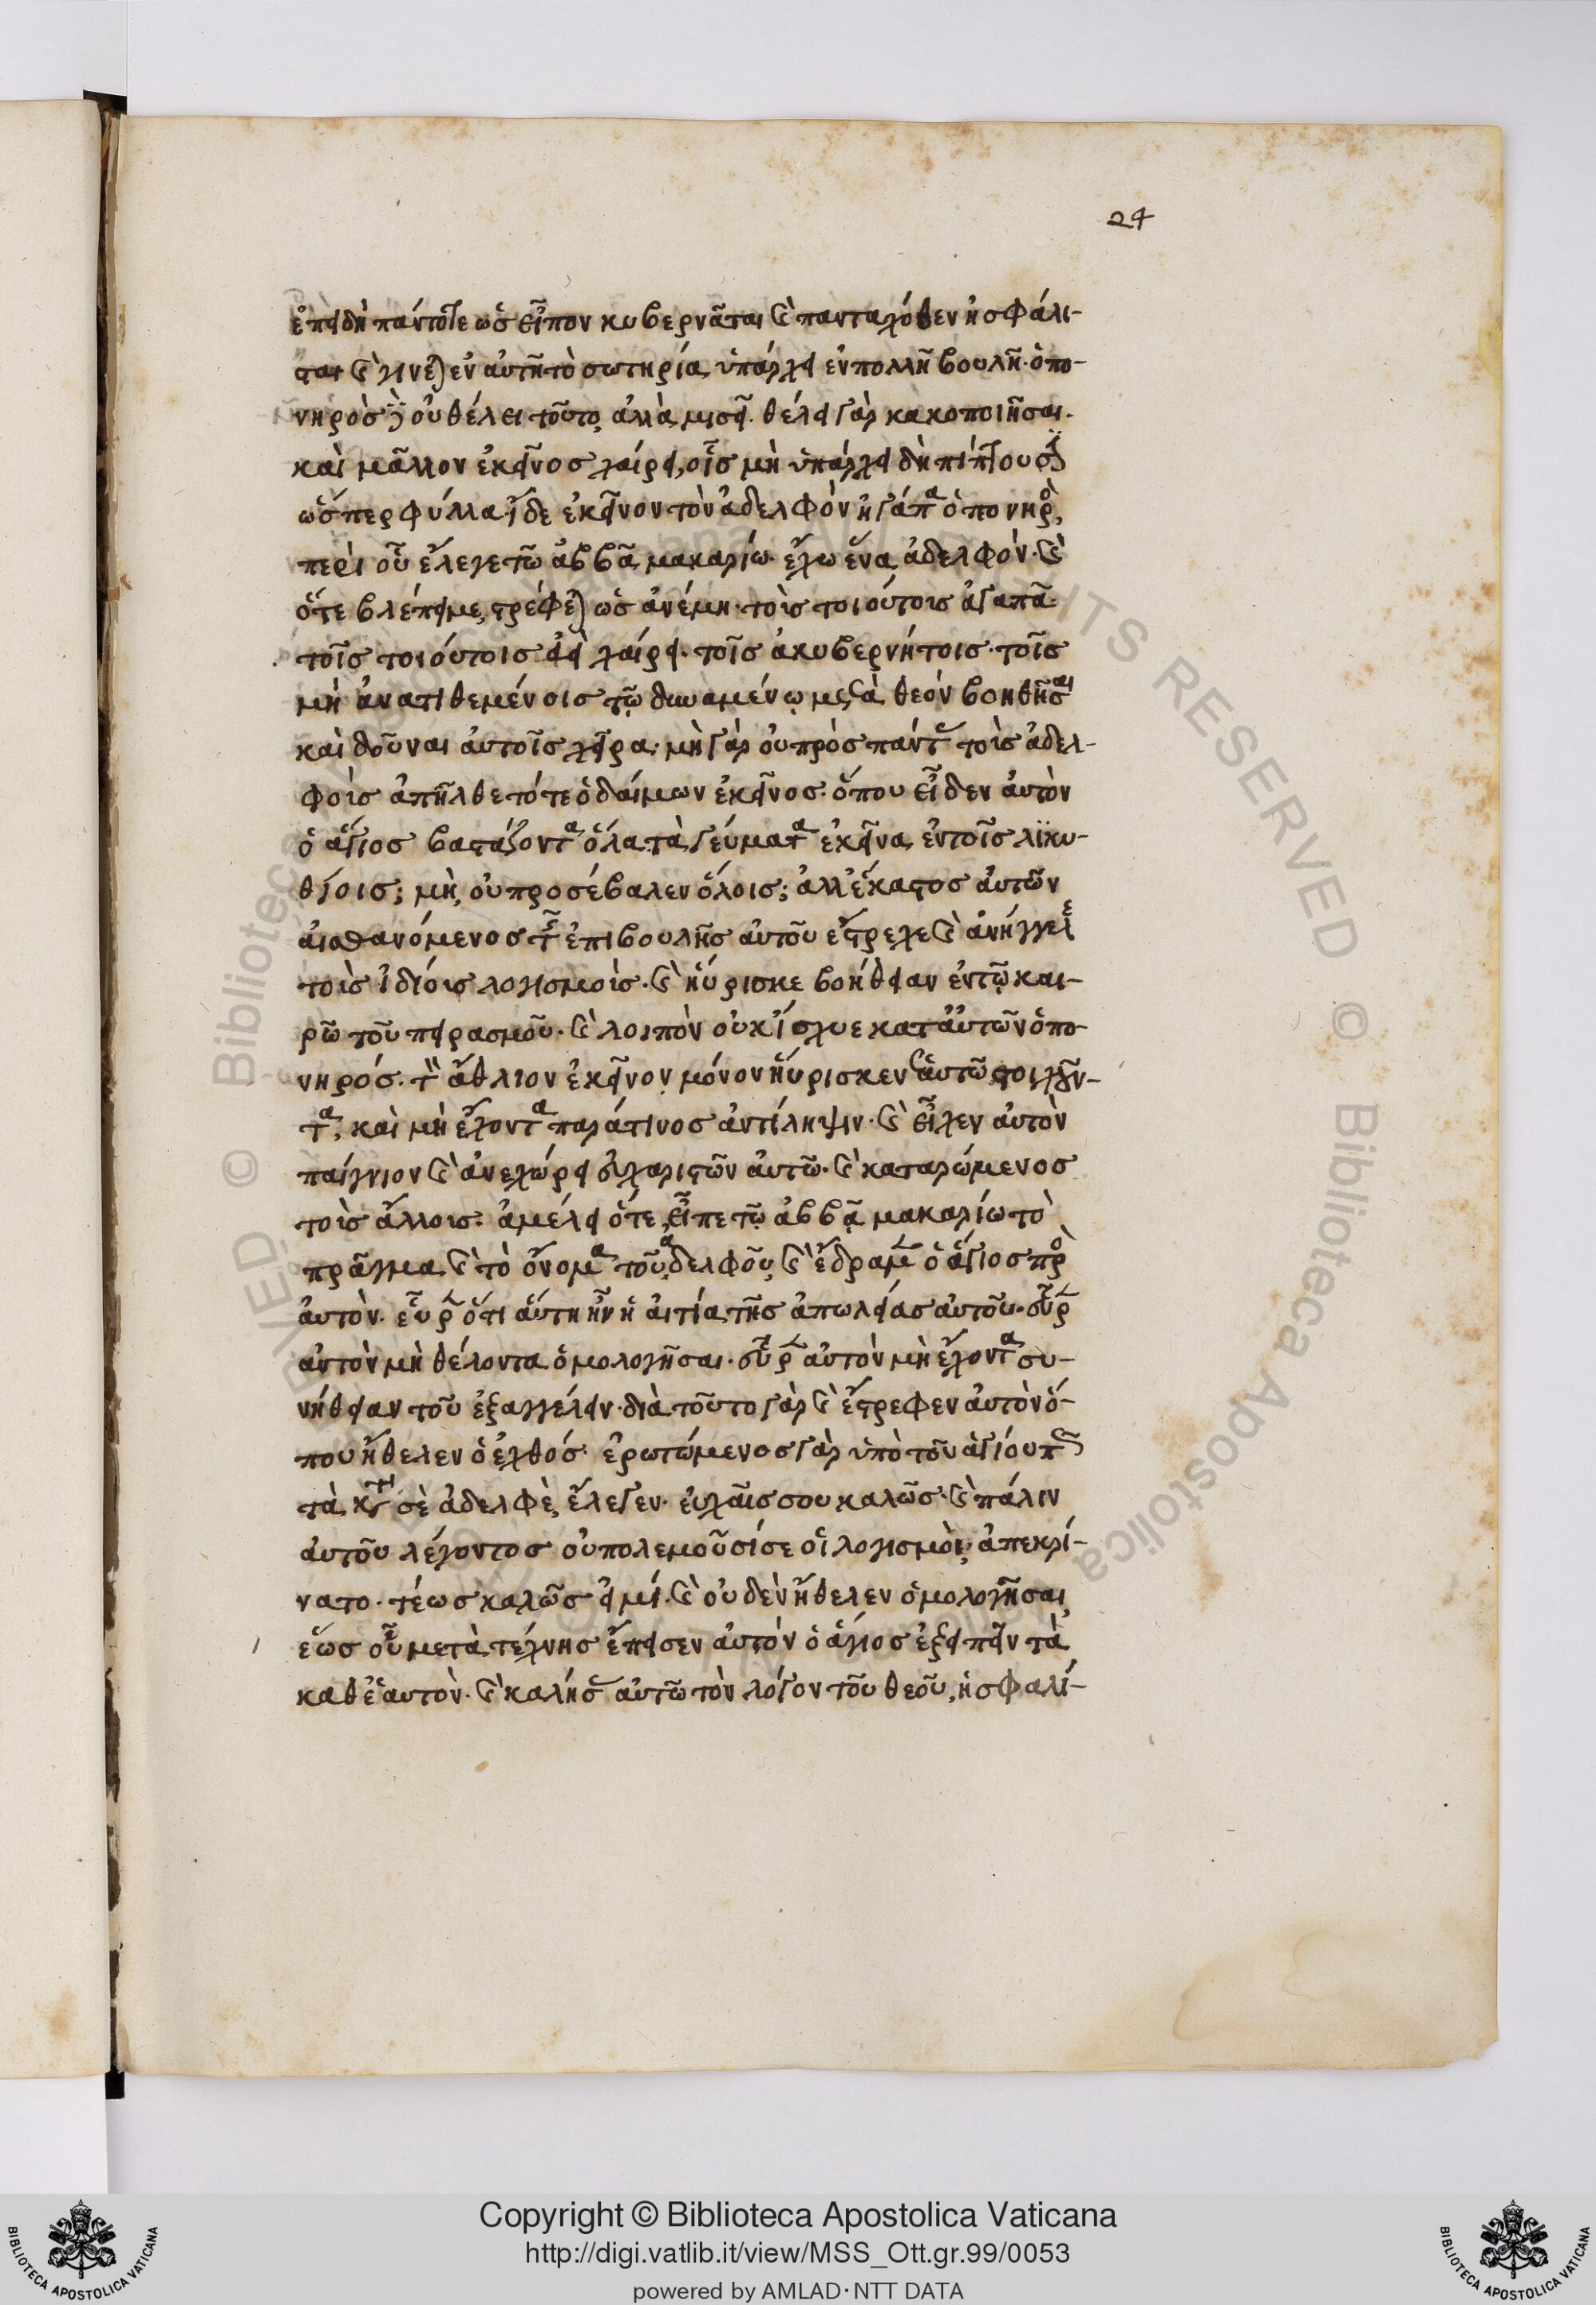 24
ἐπειδὴ πάντοτε ὡς εἶπον κυβερνᾶται καὶ πανταχόθεν ἠσφάλι-
σται καὶ γίνεται ἐν αὐτῆ τὸ σωτηρία ὑπάρχει ἐν πολλῆ βουλῆ· ὁ πο-
νηρὸς δὲ οὐ θέλει τοῦτο, ἀλλὰ μισεῖ. θέλει γὰρ κακοποιῆσαι.
καὶ μᾶλλον ἐκεῖνος χαίρει, οἷς μὴ ὑπάρχει δὴ πίπτουσιν
ὥσπερ φύλλα· ἴδε ἐκεῖνον τὸν ἀδελφὸν ἠγάπα ὁ πονηρὸς,
περὶ οὗ ἔλεγε τῶ ἀββᾶ μακαρίω· ἔχω ἕνα ἀδελφόν· καὶ
ὅτε βλέπει με, στρέφεται ὡς ἀνέμη· τοῖς τοιούτοις ἀγαπᾶ·
τοῖς τοιούτοις ἀεὶ χαίρει· τοῖς ἀκυβερνήτοις· τοῖς
μὴ ἀνατιθεμένοις τῷ δυναμένῳ μετὰ θεὸν βοηθῆσαι
καὶ δοῦναι αὐτοῖς χεῖρα· μὴ γὰρ οὐ πρὸς πάντας τοὶς ἀδελ-
φοὶς ἀπῆλθε τότε ὁ δαίμων ἐκεῖνος· ὅπου εἶδεν αὐτὸν
ὁ ἅγιος βαστάζοντα ὅλα τὰ γεύματα ἐκεῖνα ἐν τοῖς λϊκυ-
θίοις; μὴ, οὐ προσέβαλεν ὅλοις; ἀλλ' ἕκαστος αὐτῶν
αἰσθανόμενος τῆς ἐπιβουλῆς αὐτοῦ ἔτρεχε καὶ ἀνήγγελε
τοὶς ἰδίοις λογισμοὶς· καὶ ηὕρισκε βοήθειαν ἐν τῷ και-
ρῶ τοῦ πειρασμοῦ· καὶ λοιπὸν οὐκ ἴσχυε κατ' αὐτῶν ὁ πο-
νηρός. τὸν ἄθλιον ἐκεῖνον μόνον ηὕρισκεν ἑαυτῶ στοιχοῦν-
τα, καὶ μὴ ἔχοντα παράτινος ἀντίληψιν· καὶ εἶχεν αὐτὸν
παίγνιον καὶ ἀνεχώρει εὐχαριστῶν αὐτῶ· καὶ καταρώμενος
τοὶς ἄλλοις· ἀμέλει ὅτε, εἶπε τῷ ἀββᾷ μακαρίω τὸ
πρᾶγμα καὶ τὸ ὄνομα τοῦ ἀδελφοῦ, καὶ ἔδραμεν ὁ ἅγιος πρὸς
αὐτὸν· εὗρεν ὅτι αὕτη ἦν ἡ αἰτία τῆς ἀπωλείας αὐτοῦ· εὗρεν
αὐτὸν μὴ θέλοντα ὁμολογῆσαι· εὗρεν αὐτὸν μὴ ἔχοντα συ-
νήθειαν τοῦ ἐξαγγέλειν· διὰ τοῦτο γὰρ καὶ ἔστρεφεν αὐτὸν ὅ-
που ἤθελεν ὁ ἐχθρός· ἐρωτώμενος γὰρ ὑπὸ τοῦ ἁγίου π(ατ)ρ(ὸ)ς
τὰ κατὰ σὲ ἀδελφὲ, ἔλεγεν· εὐχαῖς σου καλῶς· καὶ πάλιν
αὐτοῦ λέγοντος οὐ πολεμοῦσί σε οἱ λογισμοὶ; ἀπεκρί-
νατο· τέως καλῶς εἰμί· καὶ οὐδὲν ἤθελεν ὁμολογῆσαι,
ἕως οὗ μετὰ τέχνης ἔπεισεν αὐτὸν ὁ ἅγιος ἐξειπεῖν τὰ
καθ' ἑαυτὸν· καὶ λαλήσας αὐτῶ τὸν λόγον τοῦ θεοῦ, ἠσφαλί-
© Biblioteca Apostolica Vaticana ALL RIGHTS RESERVED
Copyright © Biblioteca Apostolica Vaticana
http://digi.vatlib.it/view/MSS_Ott.gr.99/0053
powered by AMLAD·NTT DATA
BIBLIOTECA APOSTOLICA VATICANA
BIBLIOTECA APOSTOLICA VATICANA